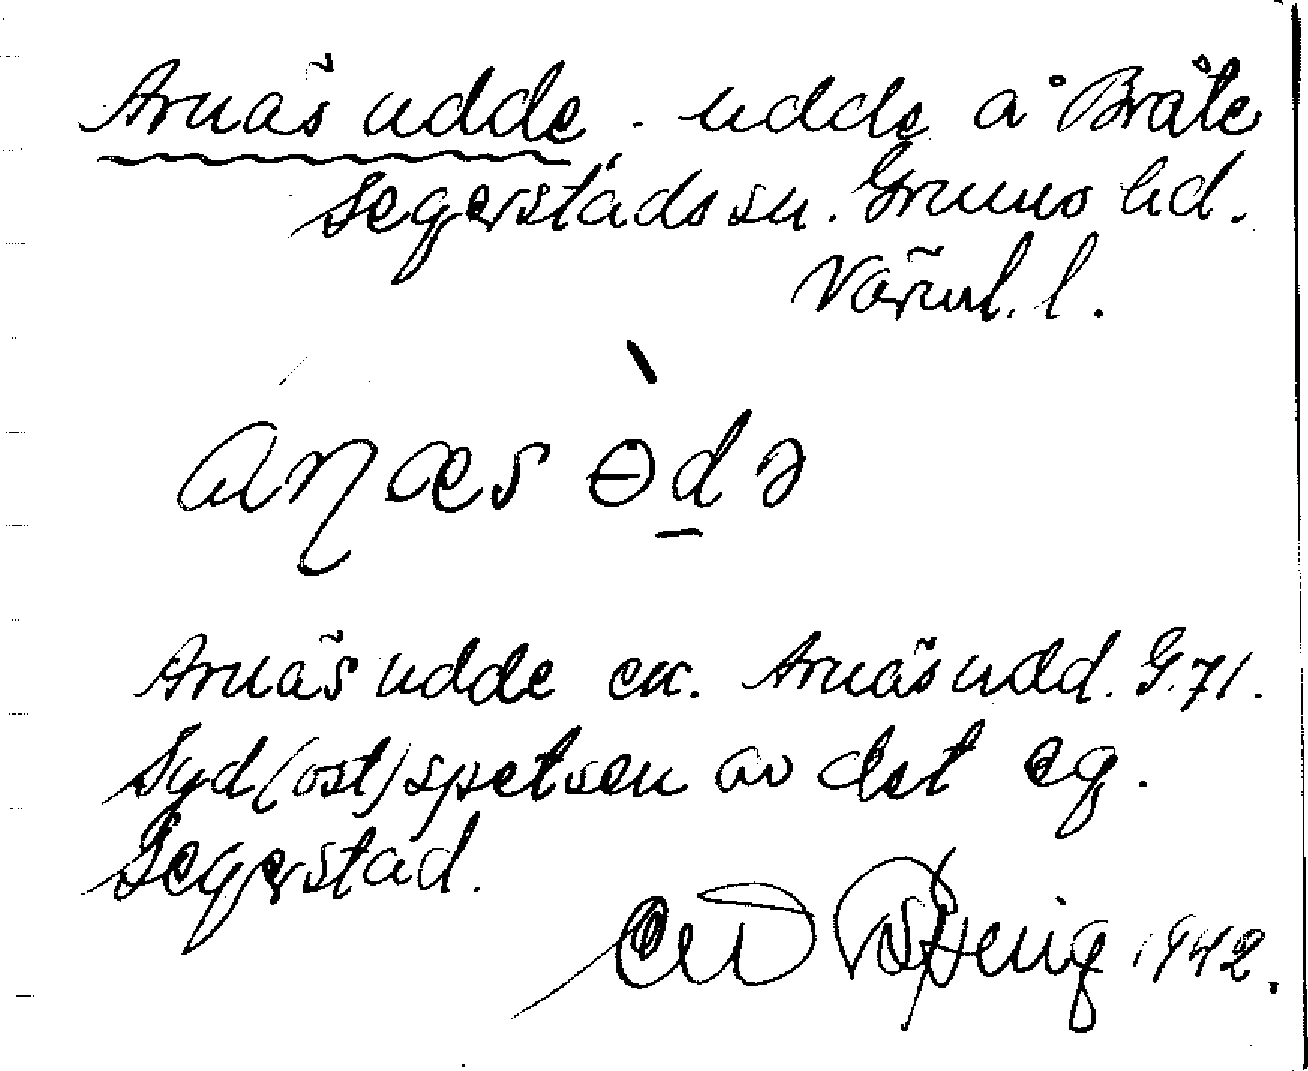 Arnäs udde. udde å Bråte
Segerstads sn. Grums hd.
Värml. l.
aɳæs ɵ̀d̲ə
Arnäs udde ek. Arnäs udd. G. 71.
Syd(ost)spetsen av det eg.
Segerstad.
1942.